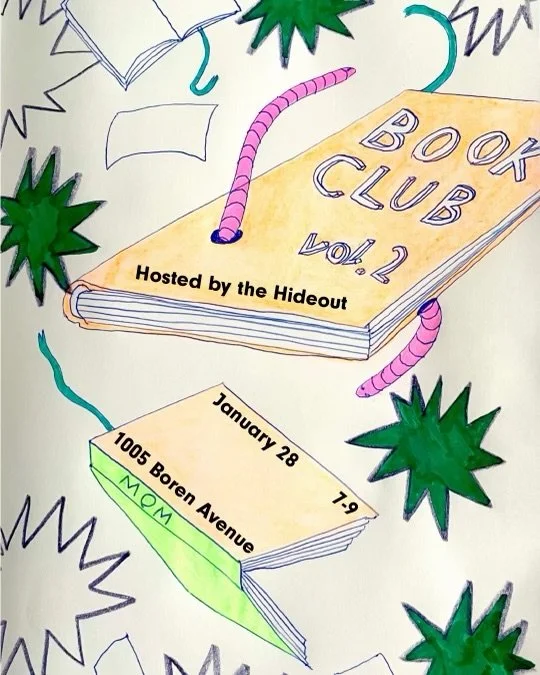 BOOK
CLUB
vol.2
Hosted by the Hideout
January 28
7-9
1005 Boren Avenue
MQM